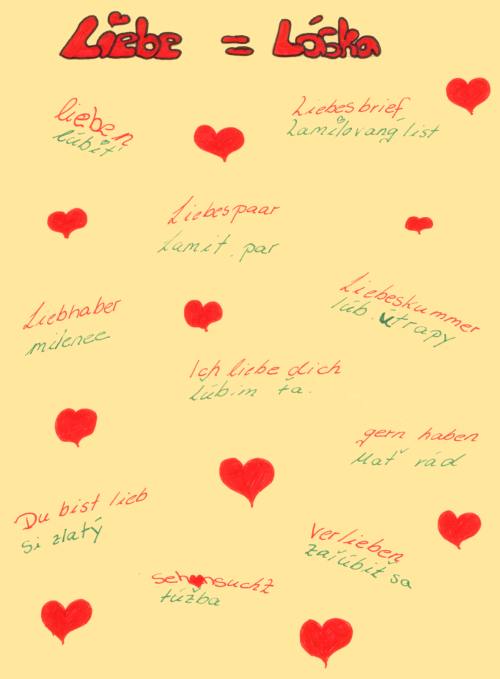 Liebe = Láska
lieben
lúbiť
Liebesbrief
Zamilovaný list
Liebespaar
Zamil. par
Liebhaber
milenec
Liebeskummer
lúb. útrapy
Ich liebe dich
lúbim ťa.
gern haben
Mať rád
Du bist lieb
Si zlatý
Verlieben
zalúbiť sa
sehnsucht
túžba